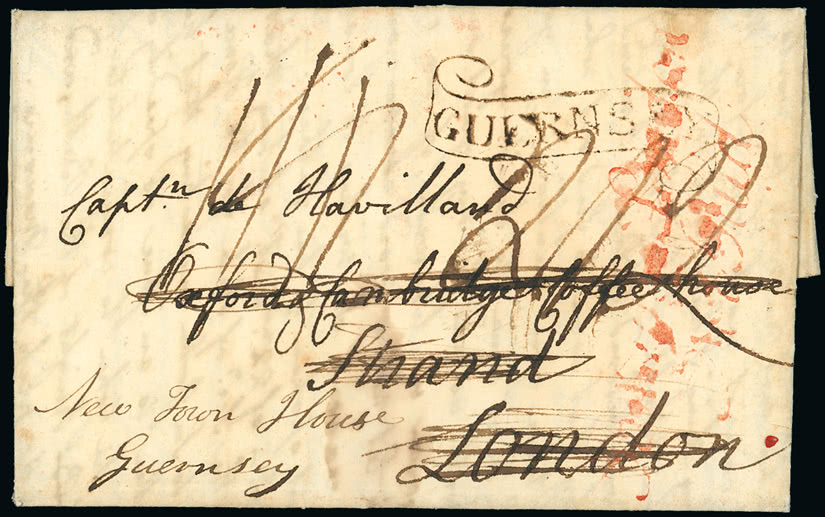 GUERNSEY
Capt.n de Havilland
Oxford & Cambridge Coffee house
Strand
London.
New Town House
Guernsey